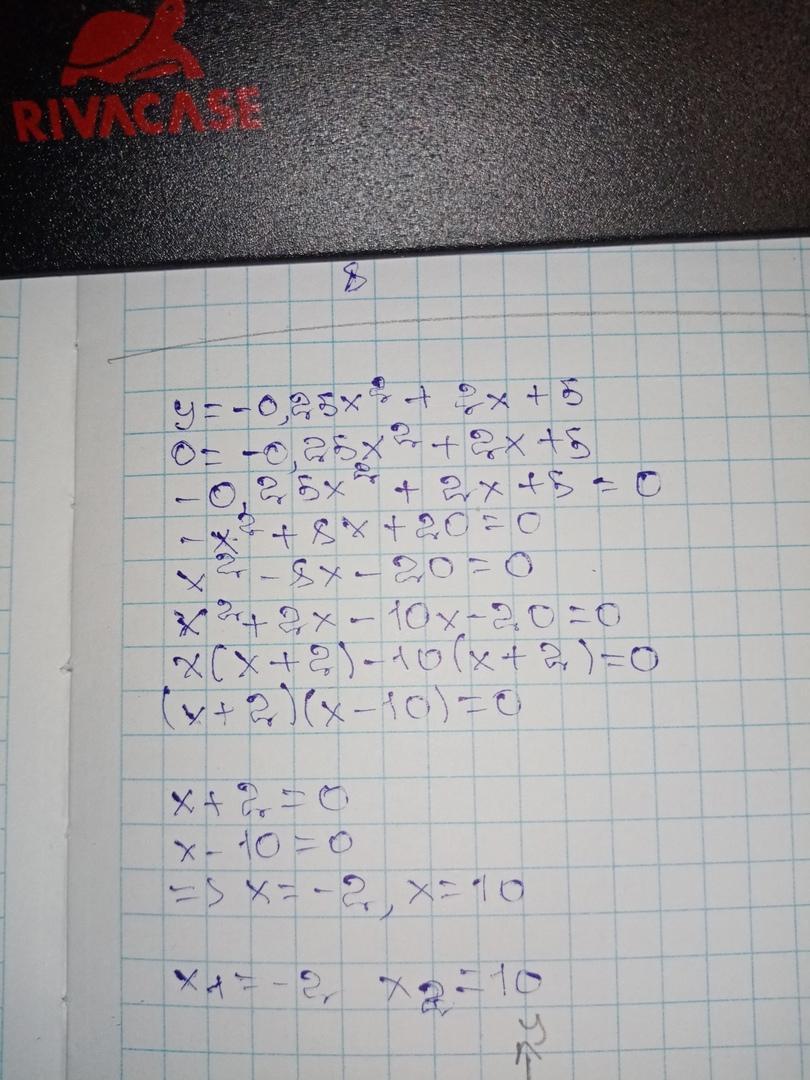 RIVACASE
8
y = -0,25x² + 2x + 5
0 = -0,25x² + 2x + 5
-0,25x² + 2x + 5 = 0
-x² + 8x + 20 = 0
x² - 8x - 20 = 0
x² + 2x - 10x - 20 = 0
x(x + 2) - 10(x + 2) = 0
(x + 2)(x - 10) = 0
x + 2 = 0
x - 10 = 0
=> x = -2, x = 10
x₁ = -2 x₂ = 10
y